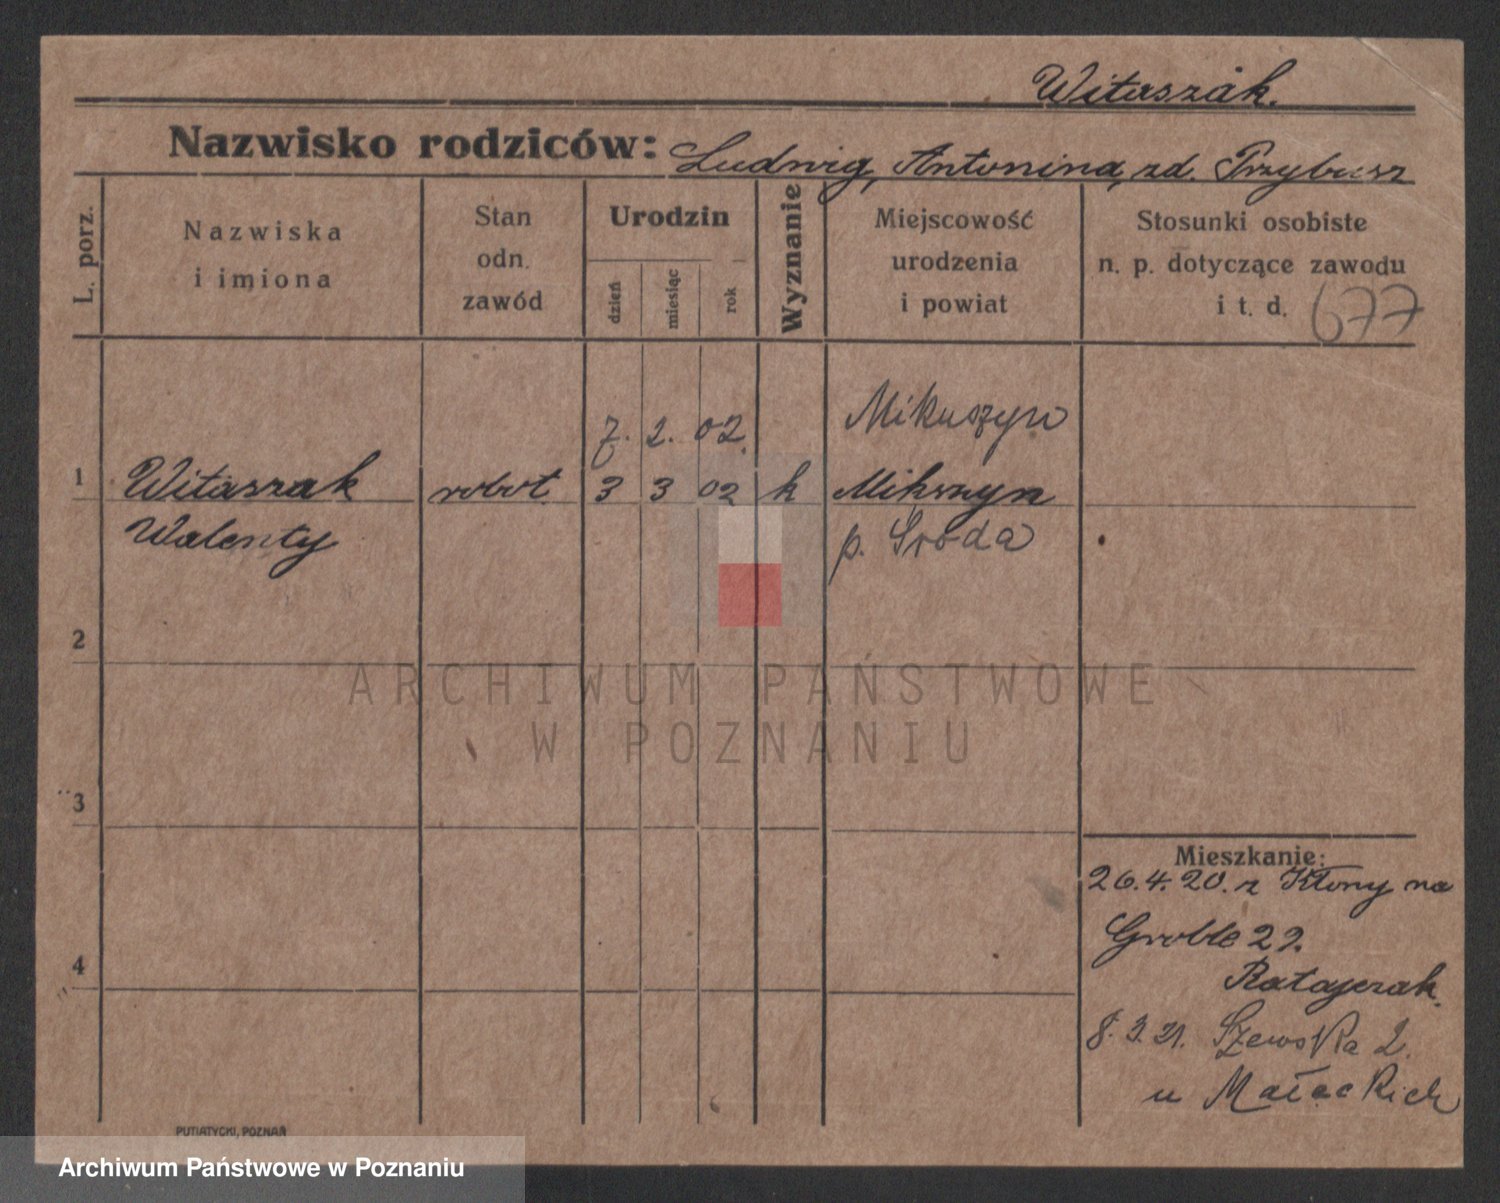 Witaszak.
Nazwisko rodziców: Ludwig, Antonina, zd. Przybysz
L. porz.
Nazwiska
i imiona
Stan
odn.
zawód
Urodzin
dzień
miesiąc
rok
Wyznanie
Miejscowość
urodzenia
i powiat
Stosunki osobiste
n. p. dotyczące zawodu
i t. d. 677
7. 2. 02. Mikuszyn
1 Witaszak robot 3 3 02 k Mikszyn
Walenty p. Środa
2
ARCHIWUM PAŃSTWOWE
W POZNANIU
3
4
Mieszkanie:
26.4.20. z Kłony na
Groble 29.
Ratajczak.
8.3.21. Szewska 2.
u Małackich
PUTIATYCKI, POZNAŃ
Archiwum Państwowe w Poznaniu